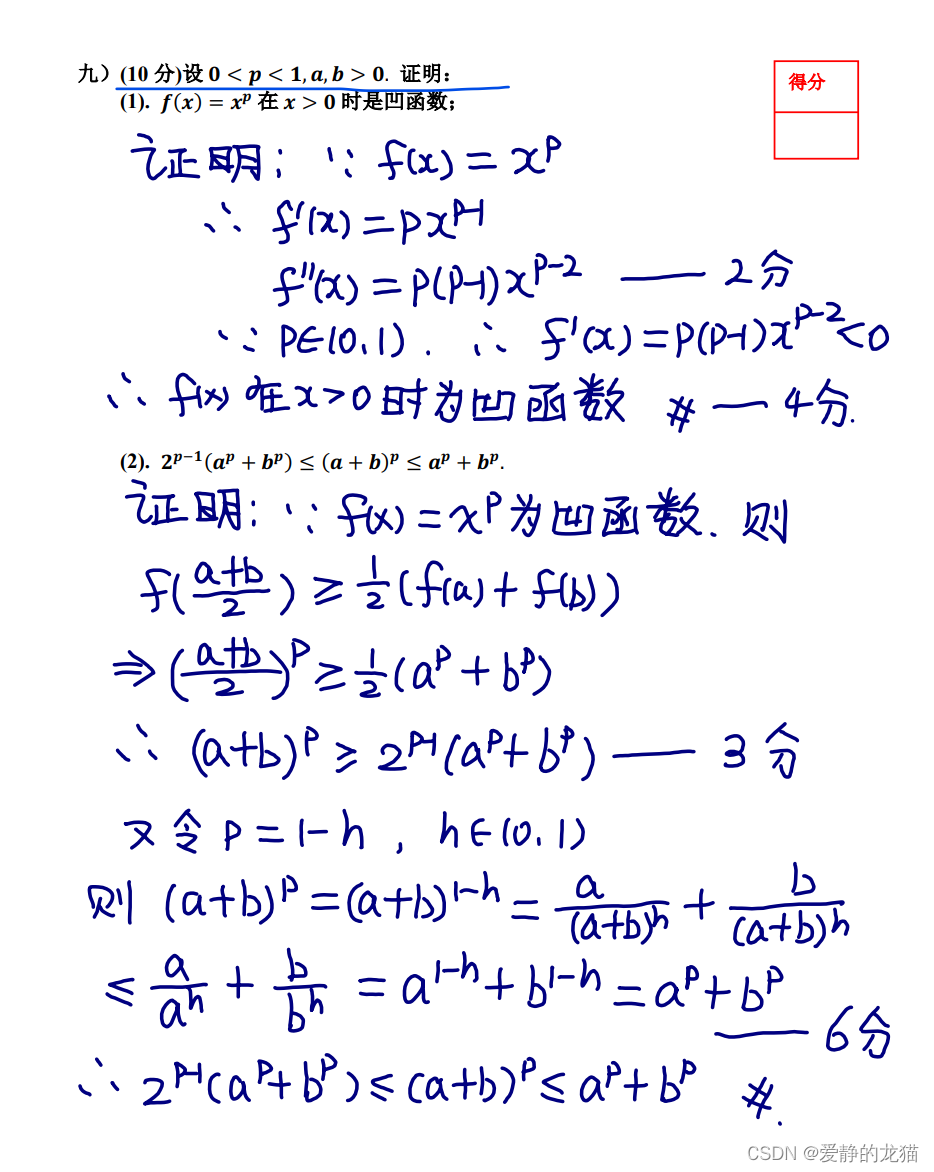 九）(10 分)设 0 < p < 1, a, b > 0. 证明:
得分
(1). f(x) = x^p 在 x > 0 时是凹函数;
证明: ∵ f(x) = x^p
∴ f'(x) = px^{p-1}
f''(x) = p(p-1)x^{p-2} —— 2分
∵ p∈(0,1). ∴ f'(x) = p(p-1)x^{p-2} < 0
∴ f(x) 在 x>0 时为凹函数 # —— 4分.
(2). 2^{p-1}(a^p + b^p) ≤ (a + b)^p ≤ a^p + b^p.
证明: ∵ f(x) = x^p 为凹函数. 则
f(\frac{a+b}{2}) ≥ \frac{1}{2}(f(a) + f(b))
⇒ (\frac{a+b}{2})^p ≥ \frac{1}{2}(a^p + b^p)
∴ (a+b)^p ≥ 2^{p-1}(a^p + b^p) —— 3分
又令 p = 1-h , h∈(0,1)
则 (a+b)^p = (a+b)^{1-h} = \frac{a}{(a+b)^h} + \frac{b}{(a+b)^h}
≤ \frac{a}{a^h} + \frac{b}{b^h} = a^{1-h} + b^{1-h} = a^p + b^p
—— 6分
∴ 2^{p-1}(a^p + b^p) ≤ (a+b)^p ≤ a^p + b^p #.
CSDN @爱静的龙猫